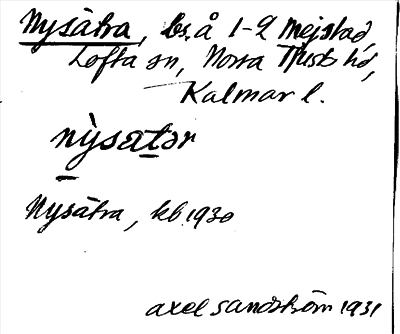 Nysätra, bs. å 1-2 Mejstad,
Lofta sn, Norra Tjusts hd,
Kalmar l.
nỳsatər
Nysätra, kb. 1930
Axel Sandström 1931